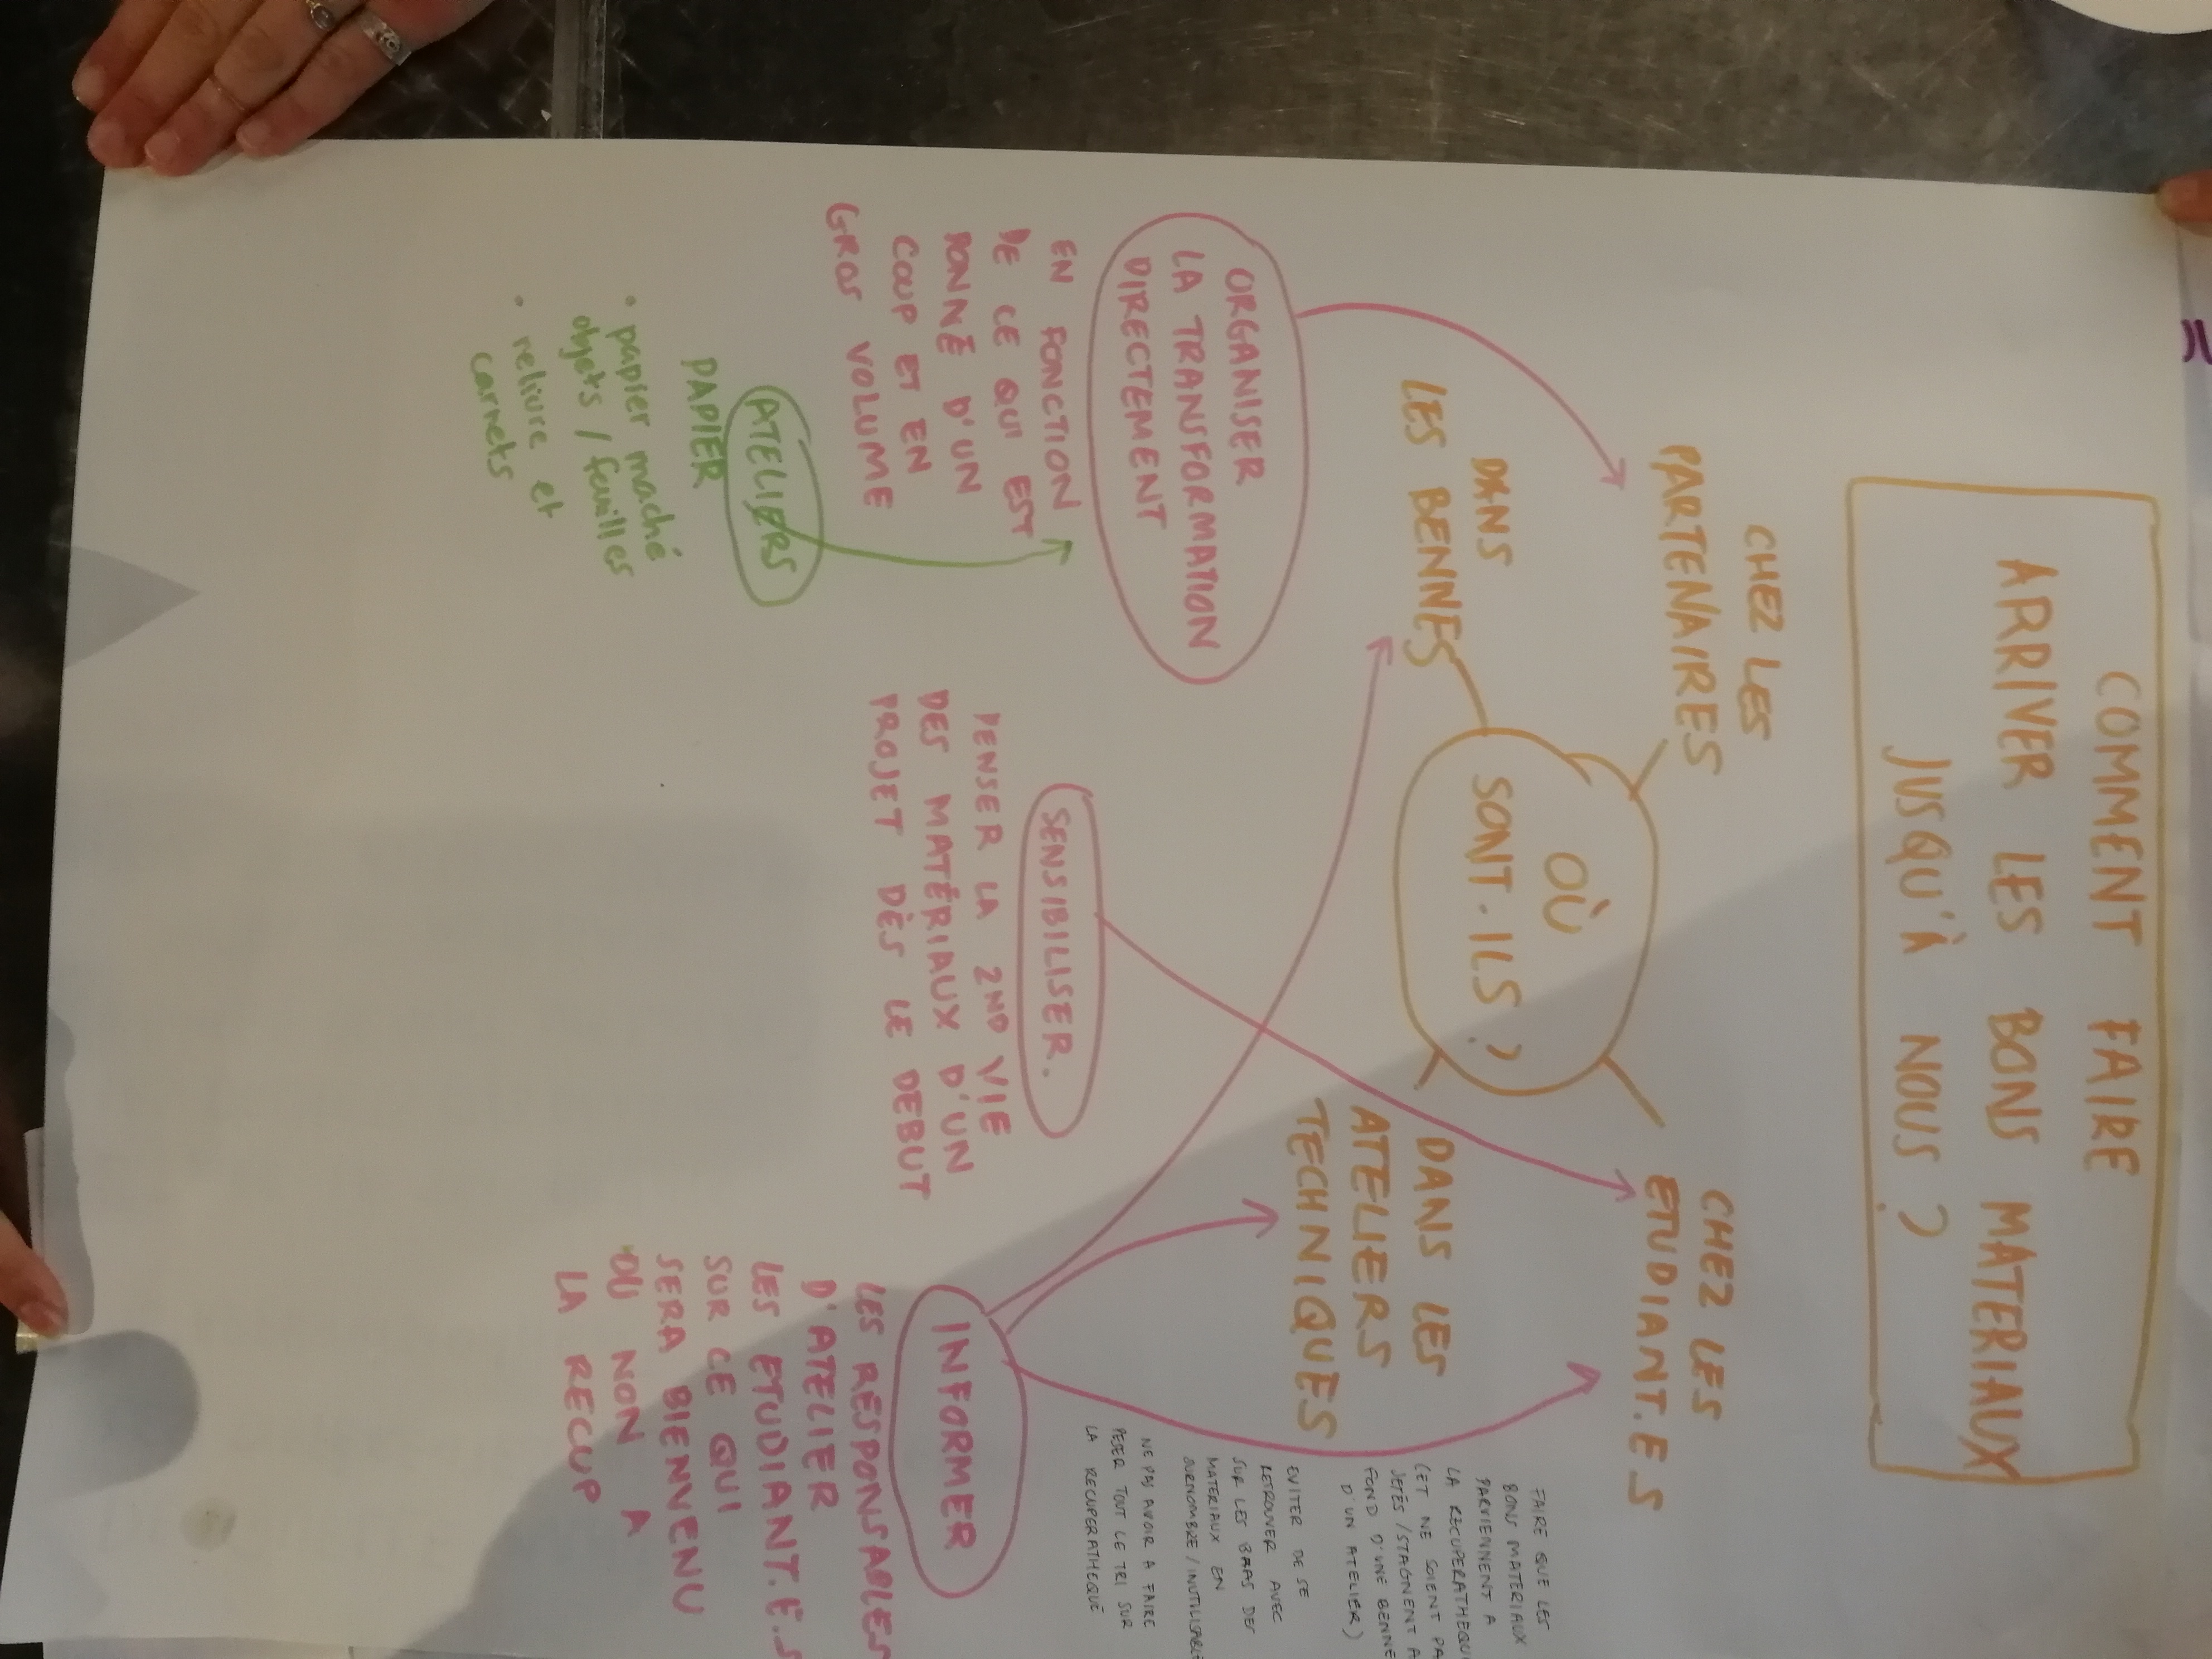 COMMENT FAIRE
ARRIVER LES BONS MATERIAUX
JUSQU'À NOUS ?
CHEZ LES
PARTENAIRES
CHEZ LES
ETUDIANT.E.S
OÙ
SONT-ILS ?
DANS
LES BENNES
DANS LES
ATELIERS
TECHNIQUES
FAIRE QUE LES
BONS MATERIAUX
PARVIENNENT A
LA RECUPERATHEQUE
(ET NE SOIENT PAS
JETÉS / STAGNENT AU
FOND D'UNE BENNE
D'UN ATELIER)
EVITER DE SE
RETROUVER AVEC
SUR LES BRAS DES
MATERIAUX EN
SURNOMBRE / INUTILISABLES
NE PAS AVOIR A FAIRE
PESER TOUT LE TRI SUR
LA RECUPERATHEQUE
ORGANISER
LA TRANSFORMATION
DIRECTEMENT
EN FONCTION
DE CE QUI EST
DONNÉ D'UN
COUP ET EN
GROS VOLUME
ATELIERS
PAPIER
• papier maché
objets / feuilles
• reliure et
carnets
SENSIBILISER.
PENSER LA 2ND VIE
DES MATÉRIAUX D'UN
PROJET DÈS LE DEBUT
INFORMER
LES RESPONSABLES
D'ATELIER
LES ETUDIANT.E.S
SUR CE QUI
SERA BIENVENU
OU NON A
LA RECUP